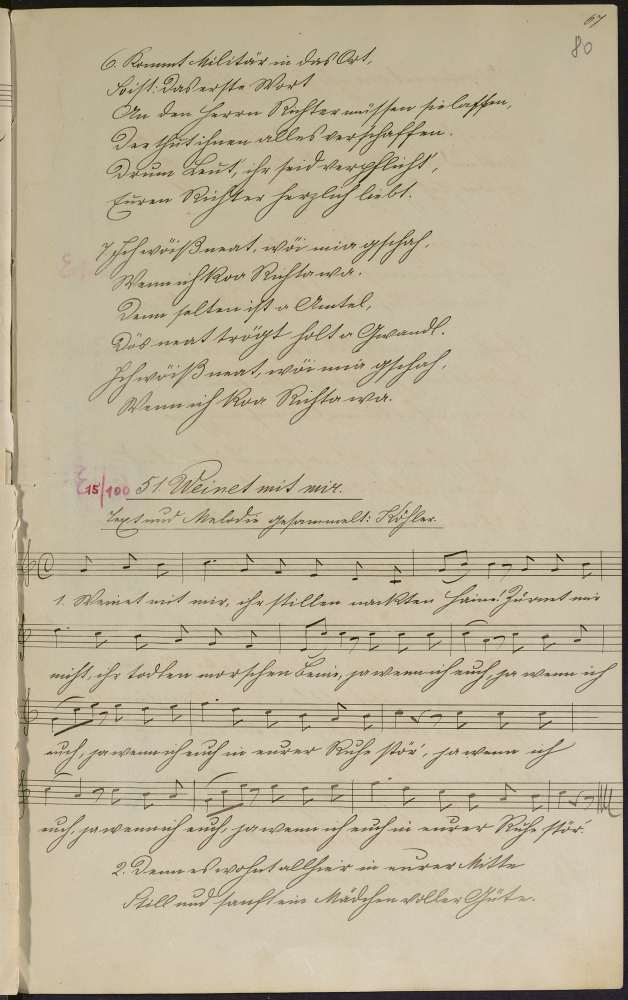 67
80
6. Kommt Militär in das Ort,
So ist: Das erste Wort
An den Herrn Richter müssen sie laffen,
Der thut ihnen alles verschaffen.
Drum Leut', ihr seid verpflicht',
Euren Richter herzlich liebt.
7. Ich wöiß neat, wöi mia gschah,
Wenn ich koa Richta wa.
Denn selten ist a Amtel,
Dös neat trögt holt a Gwandl.
Ich wöiß neat, wöi mia gschah,
Wenn ich koa Richta wa.
15/100 51. Weinet mit mir.
Text und Melodie gesammelt: Köhler.
1. Weinet mit mir, ihr stillen nackten Haine! Zürnet mir
nicht, ihr todten morschen Beine, ja wenn ich euch, ja wenn ich
euch, ja wenn ich euch in eurer Ruhe stör', ja wenn ich
euch, ja wenn ich euch, ja wenn ich euch in eurer Ruhe stör.
2. Denn es wohnt allhier in eurer Mitte
Still und sanft ein Mädchen voller Güte.